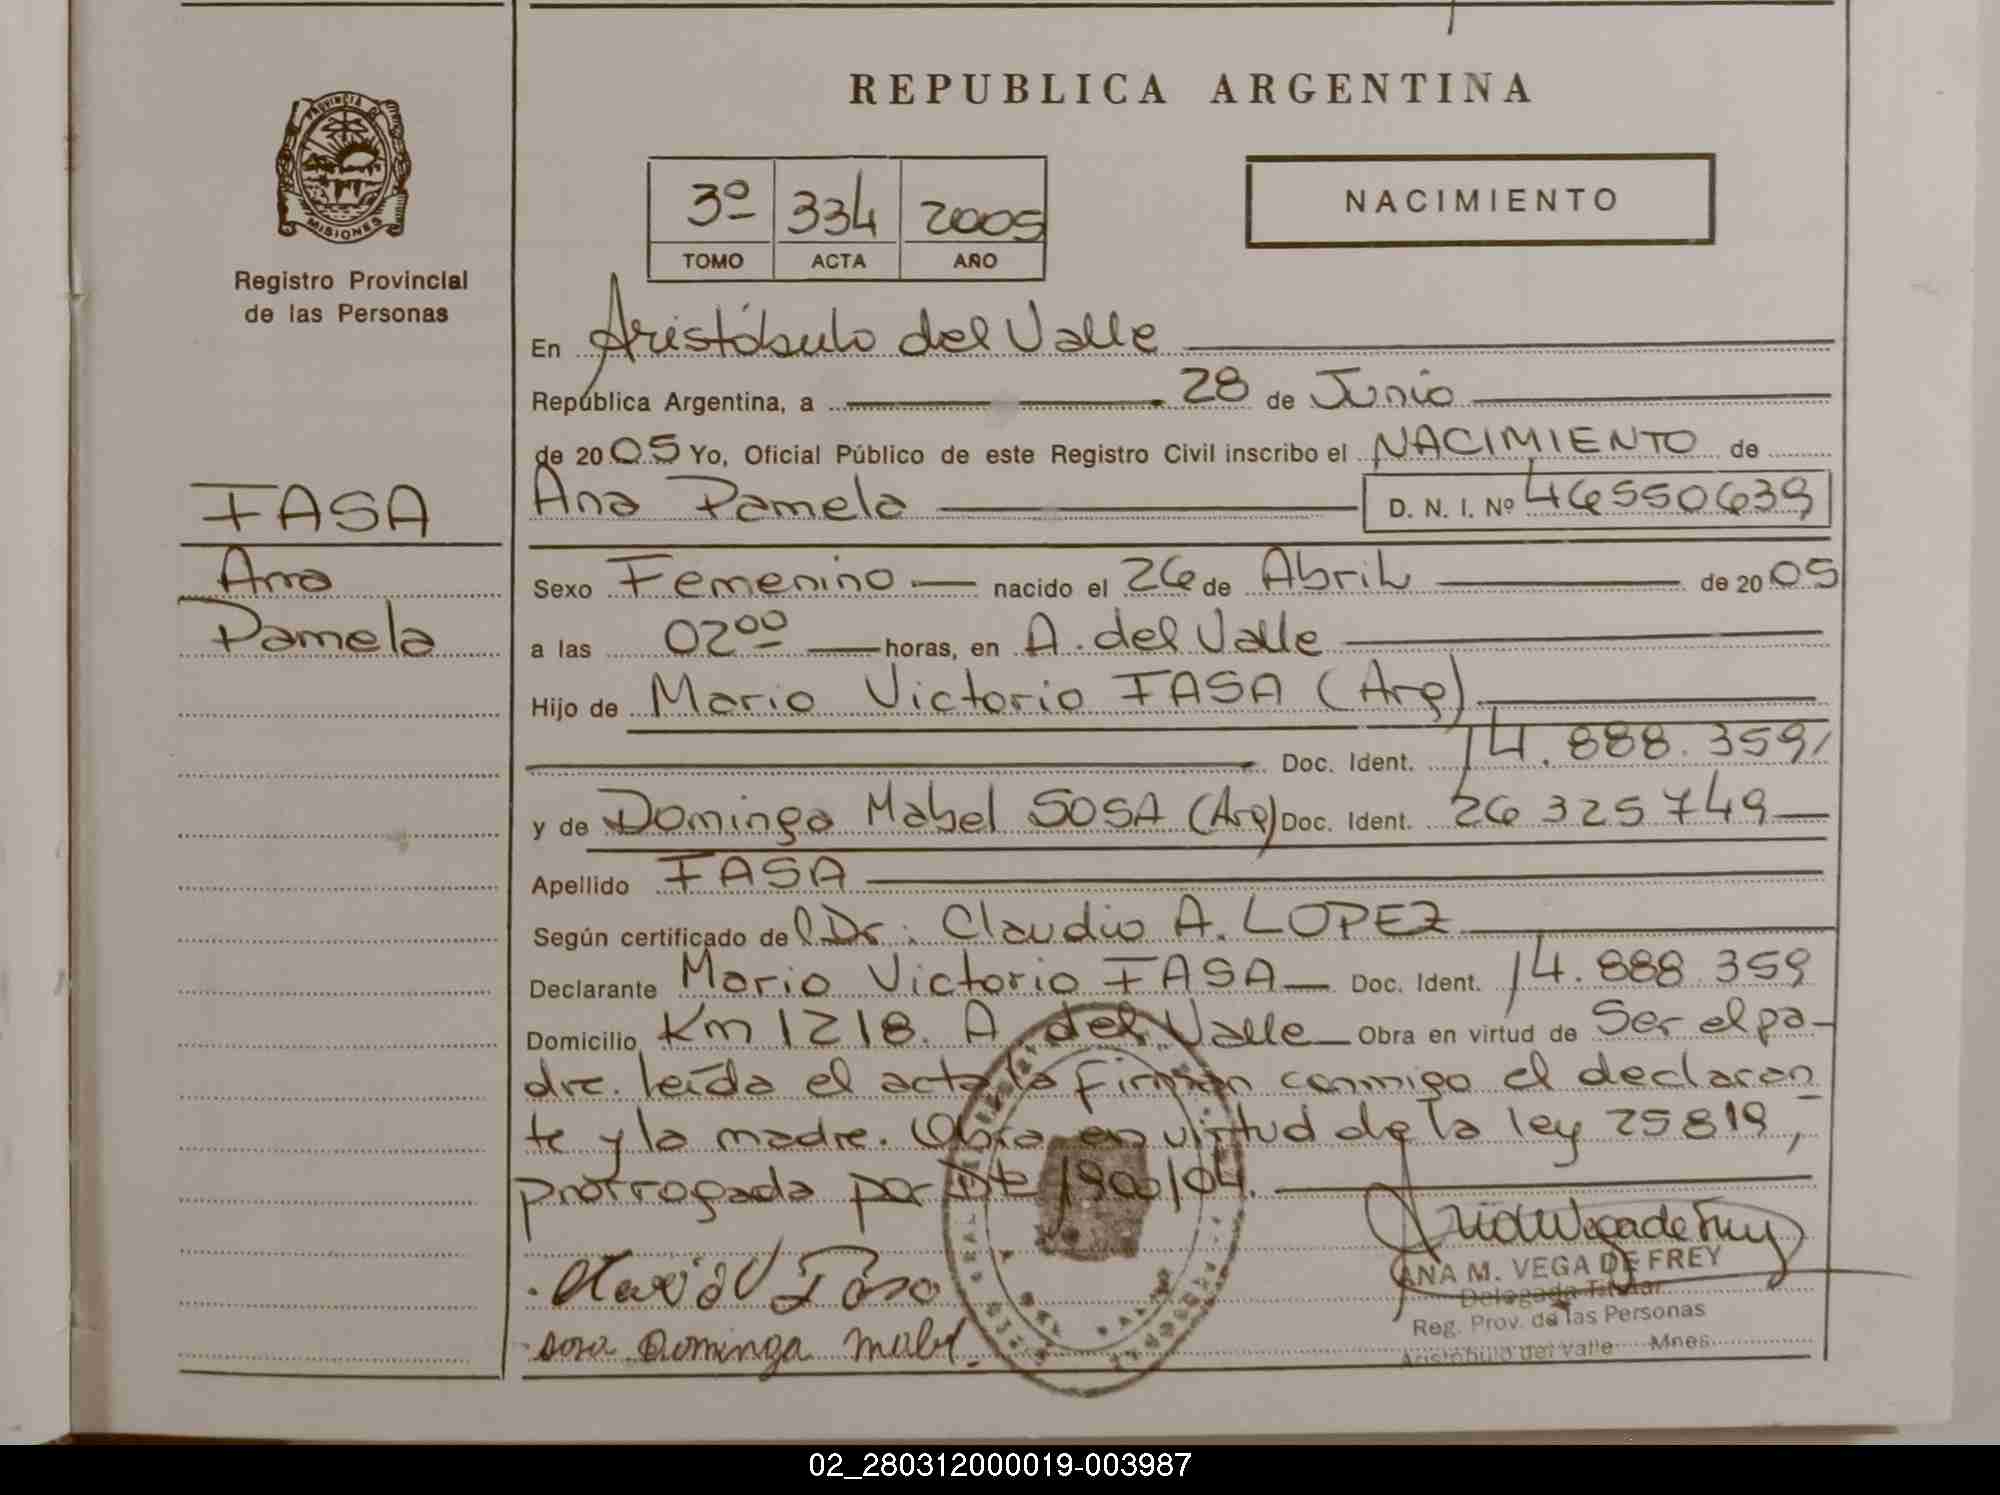 REPUBLICA ARGENTINA
PROVINCIA DE
MISIONES
Registro Provincial
de las Personas
3º 334 2005
TOMO ACTA AÑO
NACIMIENTO
En Aristóbulo del Valle
República Argentina, a 28 de Junio
de 2005 Yo, Oficial Público de este Registro Civil inscribo el NACIMIENTO de
Ana Pamela D. N. I. Nº 46550639
FASA
Ana
Pamela
Sexo Femenino nacido el 26 de Abril de 2005
a las 02⁰⁰ horas, en A. del Valle
Hijo de Mario Victorio FASA (Arg)
Doc. Ident. 14.888.359
y de Dominga Mabel SOSA (Arg) Doc. Ident. 26 325 749
Apellido FASA
Según certificado del Dr. Claudio A. LOPEZ
Declarante Mario Victorio FASA Doc. Ident. 14.888.359
Domicilio Km 1218. A del Valle Obra en virtud de Ser el pa-
dre. leída el acta la firman conmigo el declaran
te y la madre. Obra en virtud de la ley 25819,
prorrogada por Dto 1900/04.
sosa Dominga Mabel.
ANA M. VEGA DE FREY
Delegada Titular
Reg. Prov. de las Personas
Aristóbulo del Valle Mnes
02_280312000019-003987